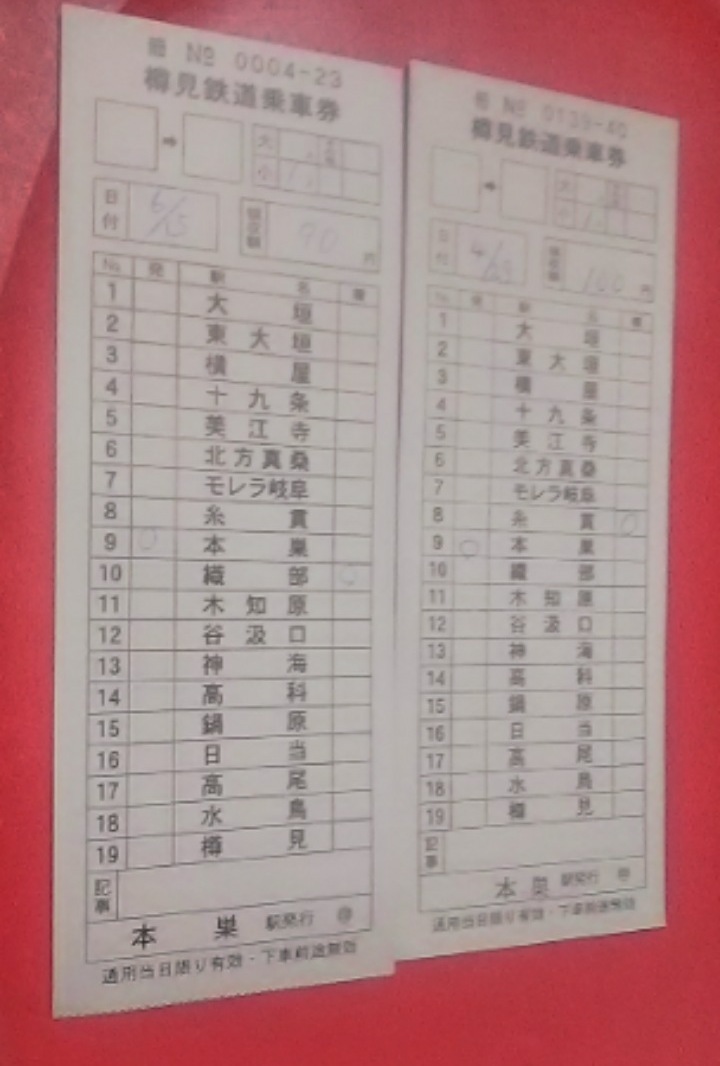 No 0004-23
樽見鉄道乗車券
➡
大
小 1
日付 6/15
領収額 90 円
No. 発 駅名 着
1 大垣
2 東大垣
3 横屋
4 十九条
5 美江寺
6 北方真桑
7 モレラ岐阜
8 糸貫
9 ○ 本巣
10 織部 ○
11 木知原
12 谷汲口
13 神海
14 高科
15 鍋原
16 日当
17 高尾
18 水鳥
19 樽見
記事
本巣 駅発行
通用当日限り有効・下車前途無効
No 0139-40
樽見鉄道乗車券
➡
大
小 1
日付
領収額 100 円
No. 発 駅名 着
1 大垣
2 東大垣
3 横屋
4 十九条
5 美江寺
6 北方真桑
7 モレラ岐阜
8 糸貫 ○
9 ○ 本巣
10 織部
11 木知原
12 谷汲口
13 神海
14 高科
15 鍋原
16 日当
17 高尾
18 水鳥
19 樽見
記事
本巣 駅発行
通用当日限り有効・下車前途無効